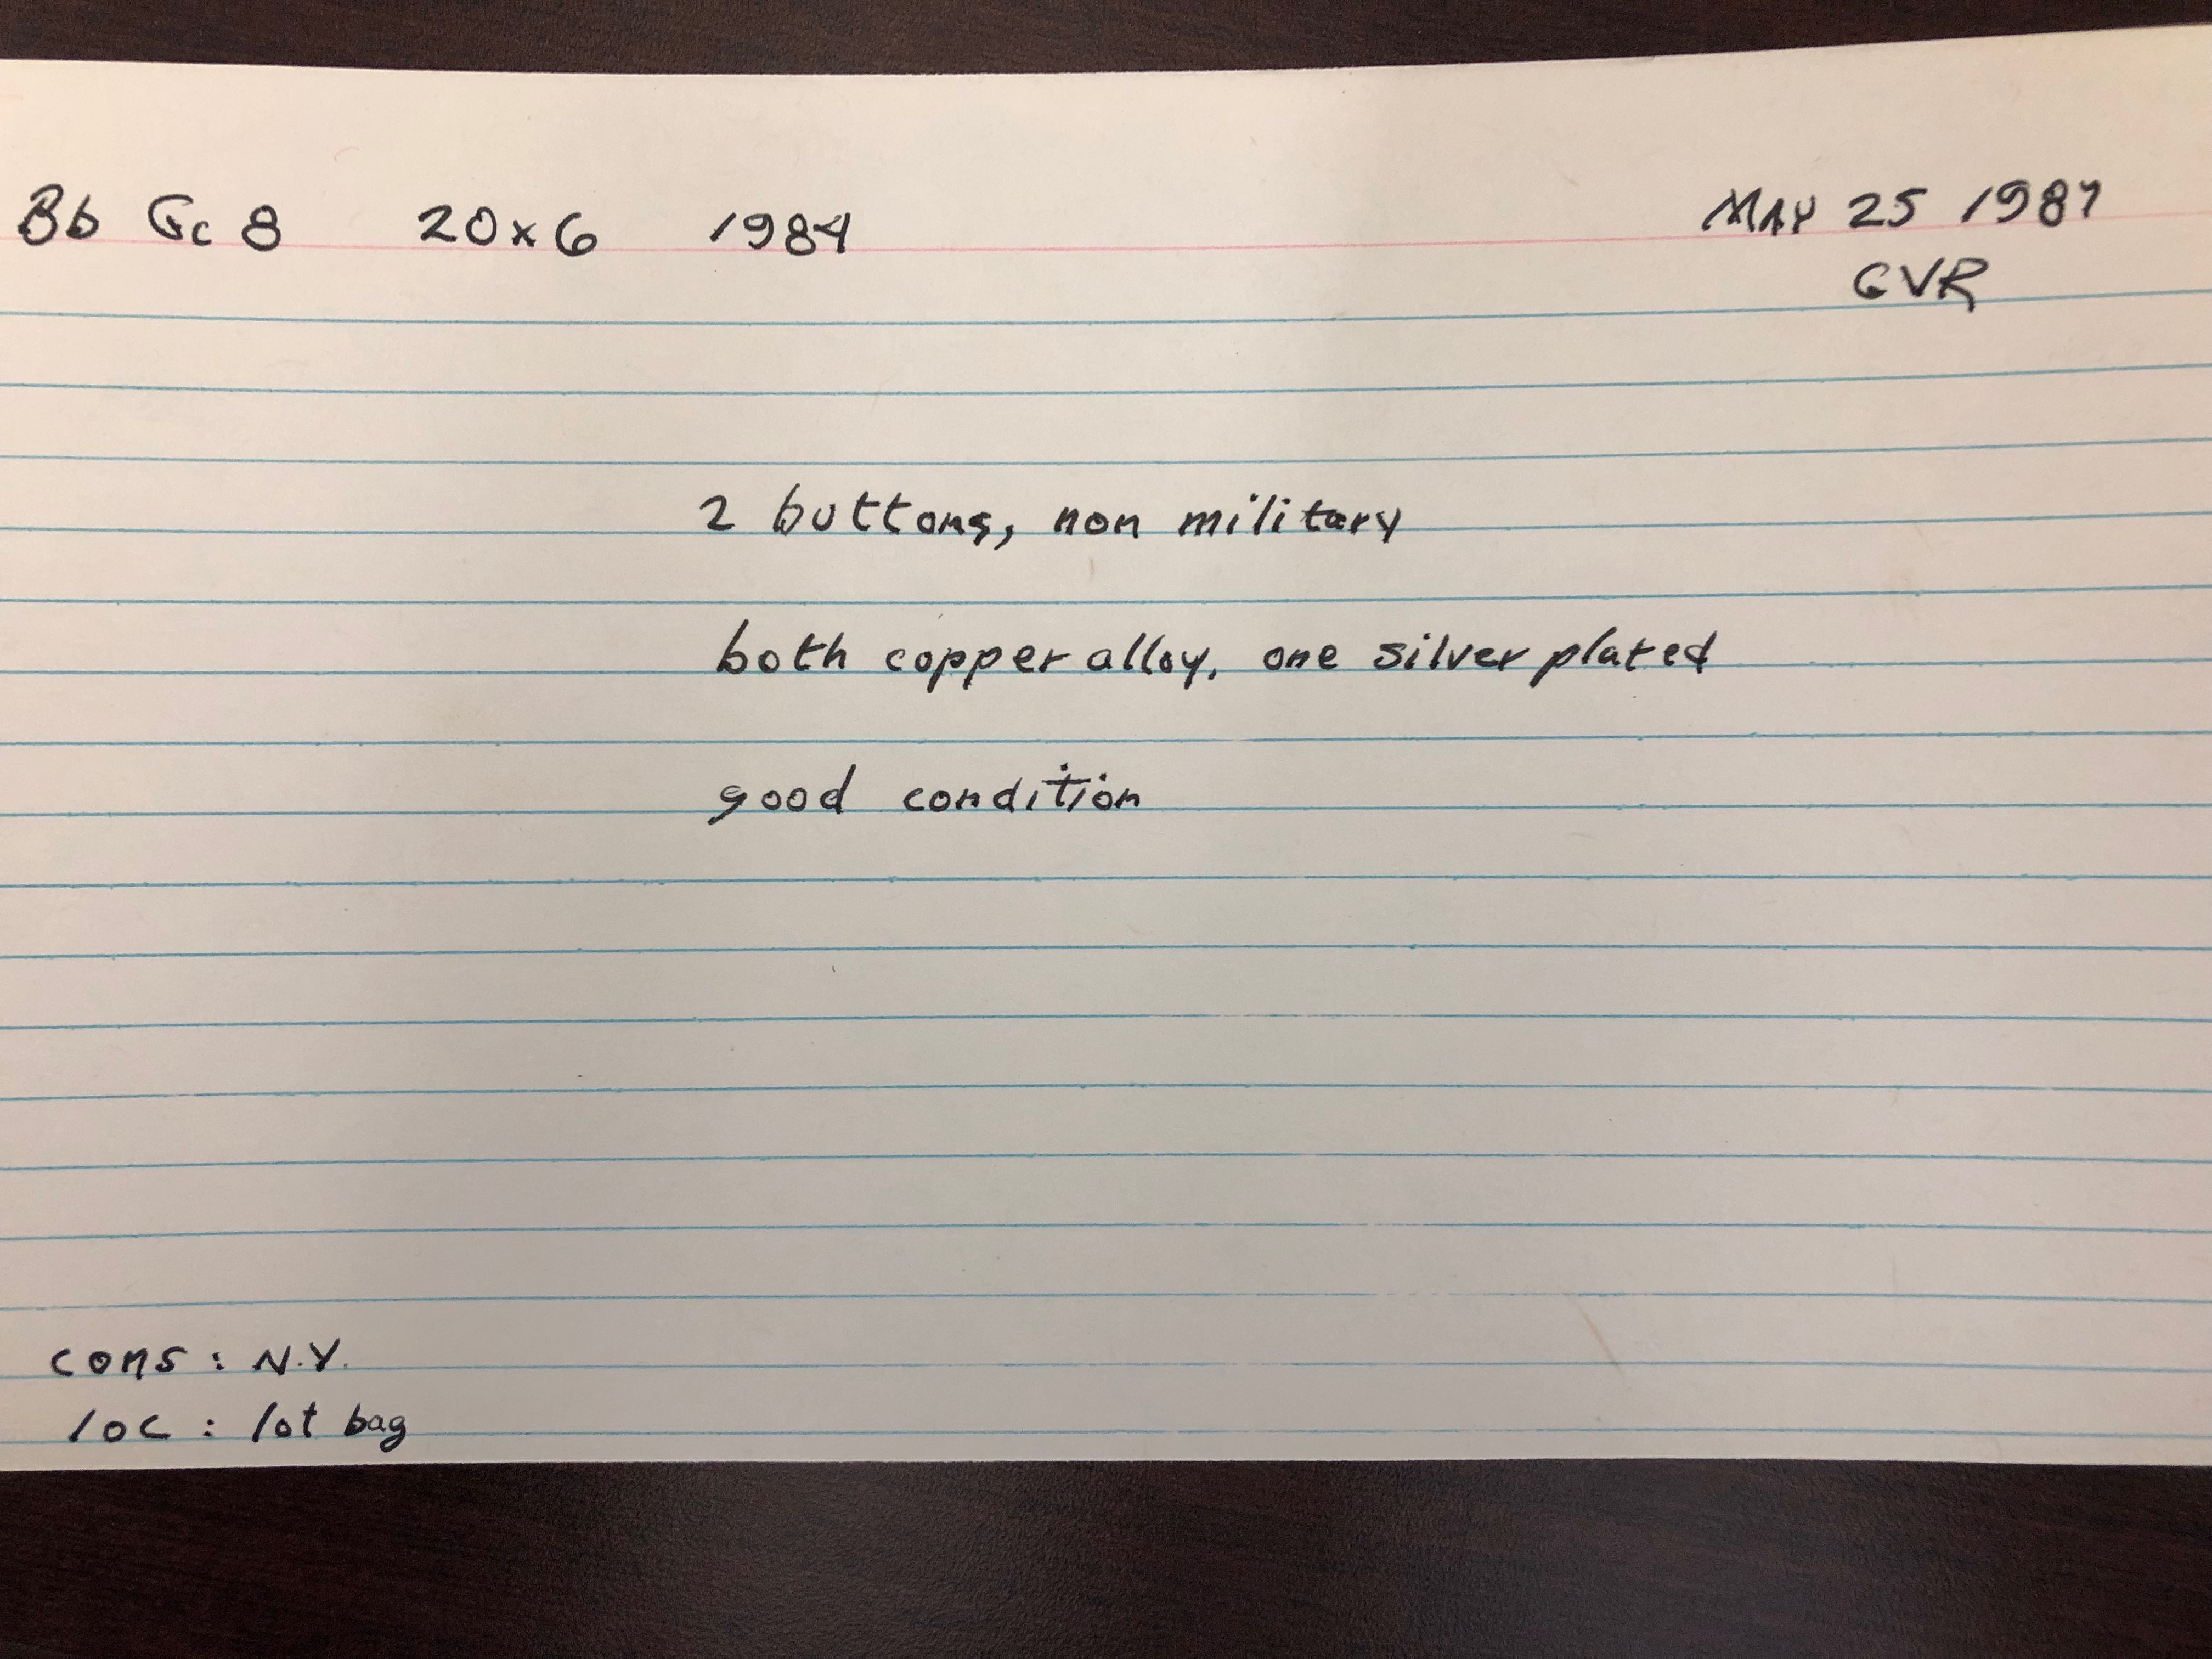 Bb Gc 8 20x6 1984 MAY 25 1987
GVR
2 buttons, non military
both copper alloy, one silver plated
good condition
cons: N.Y.
loc: lot bag